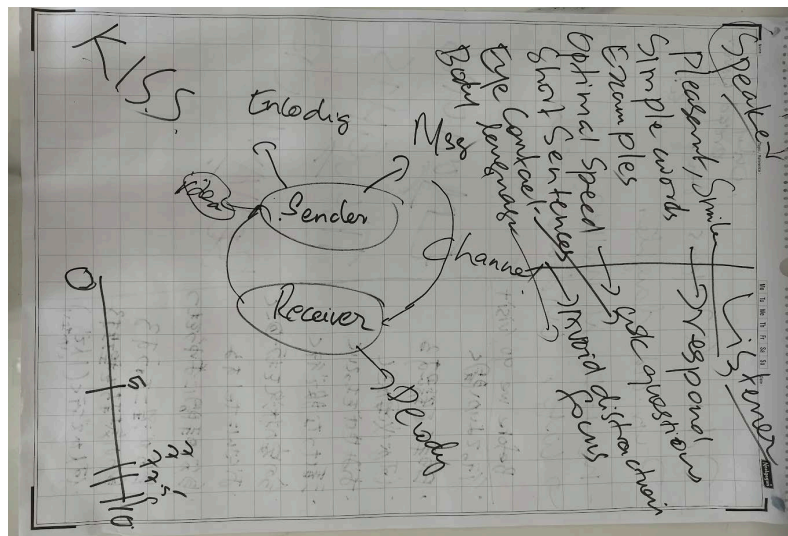 Speaker
Pleasant, Smile
Simple words
Examples
Optimal Speed
Short Sentences
Eye Contact
Body language
Listener
respond
ask questions
Avoid distraction
focus
Msg
Encodig
Sender
idea
Channel
Receiver
Decodig
K I S S.
0
5
10